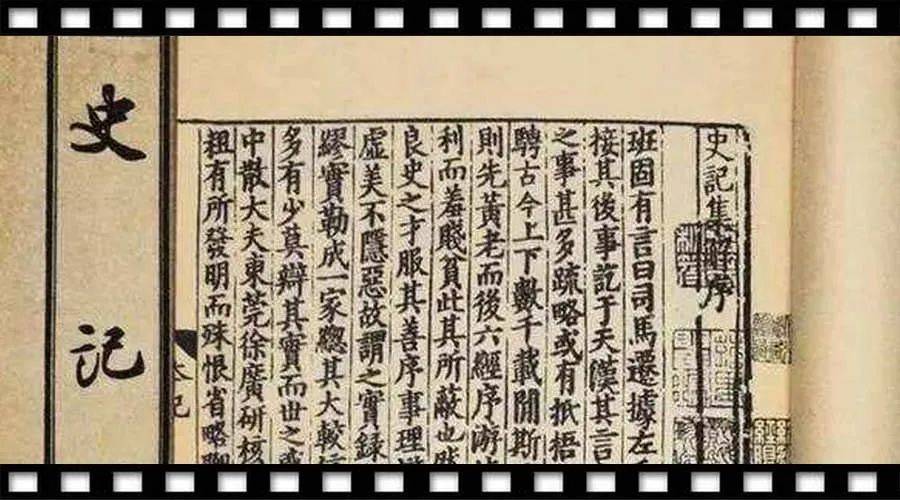 史記集解序
班固有言曰司馬遷據左
接其後事訖于天漢其言
之事甚多疏略或有抵梧
騁古今上下數千載閒斯
則先黃老而後六經序游
利而羞賤貧此其所蔽也
良史之才服其善序事理
虛美不隱惡故謂之實錄
繆實勒成一家緫其大較
多有少莫辯其實而世之
中散大夫東莞徐廣研核
粗有所發明而殊恨省略
史记